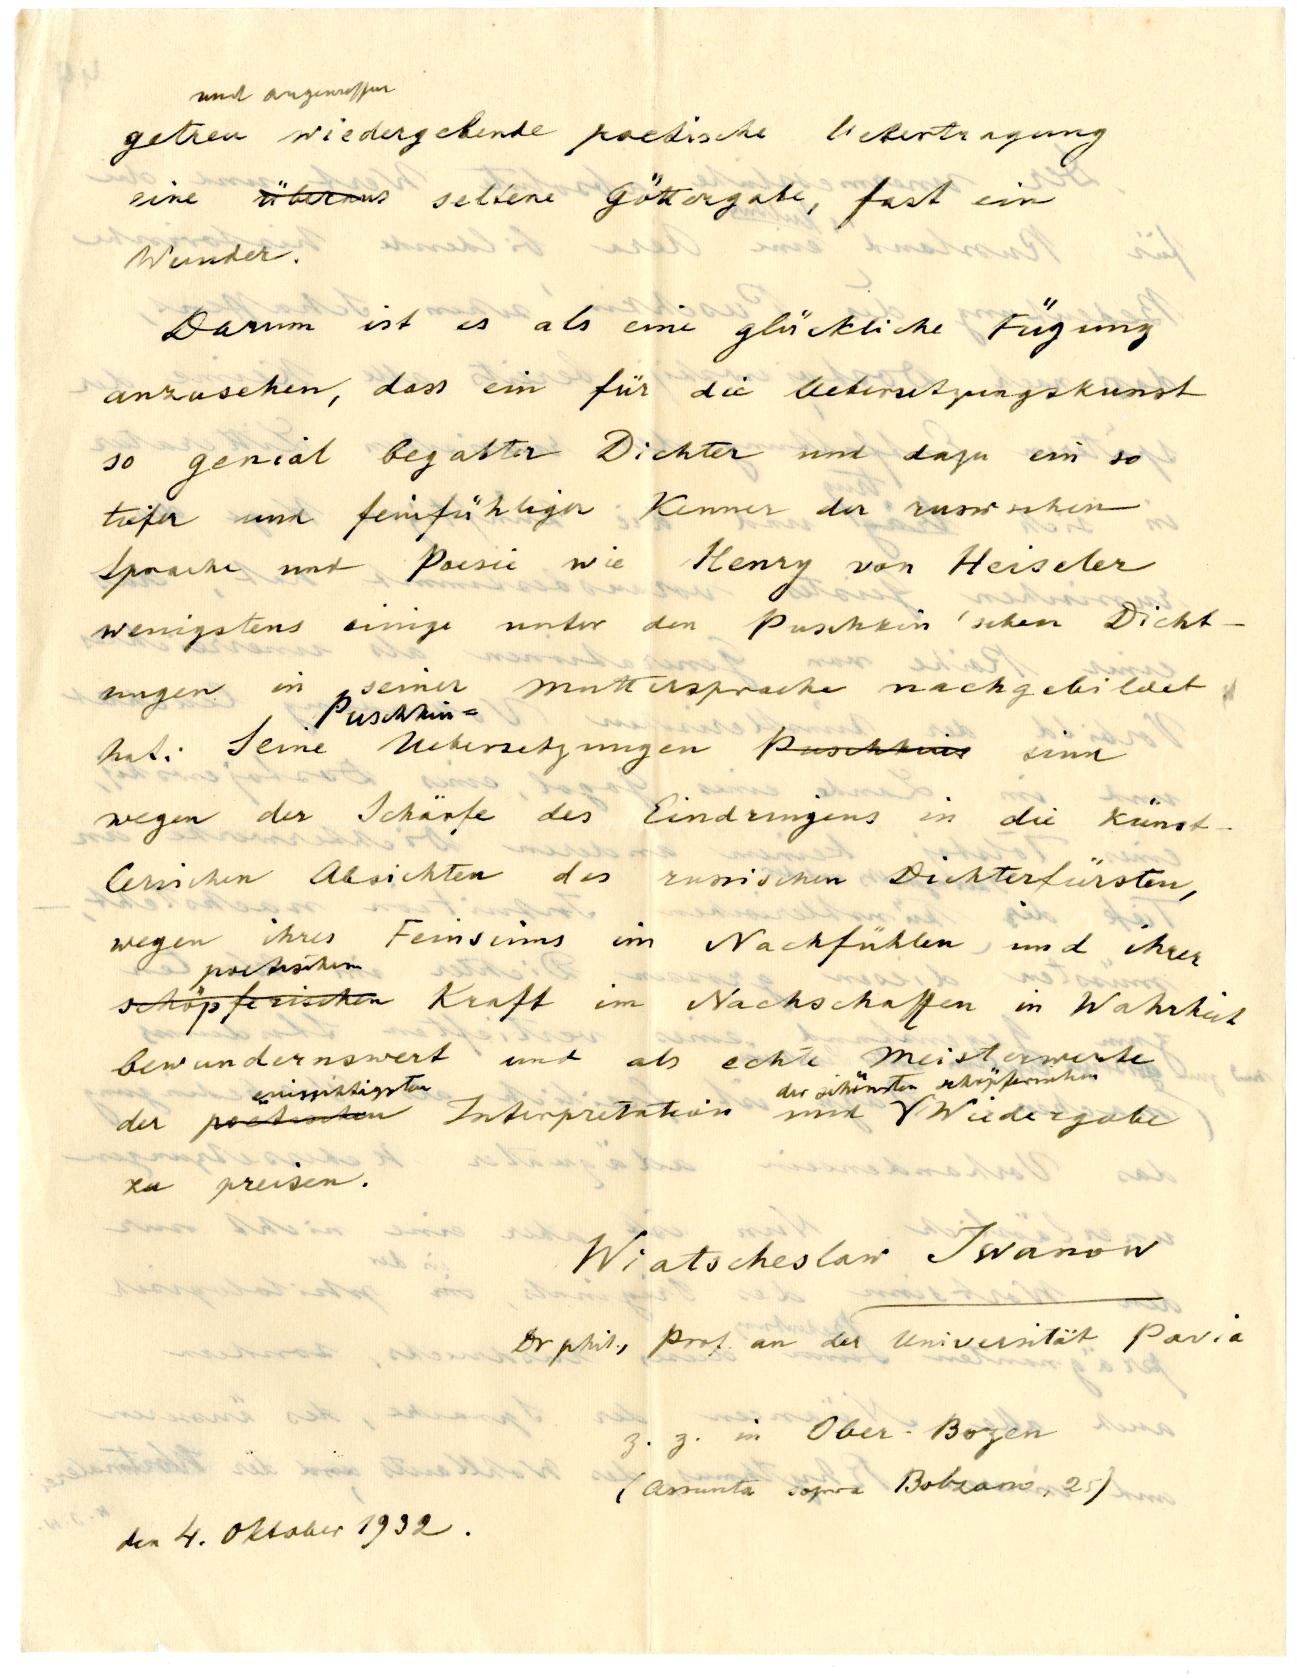 und angemessen
getreu wiedergebende poetische Uebertragung
eine überaus seltene Göttergabe, fast ein
Wunder.
Darum ist es als eine glückliche Fügung
anzusehen, dass ein für die Uebersetzungskunst
so genial begabter Dichter und dazu ein so
tiefer und feinfühliger Kenner der russischen
Sprache und Poesie wie Henry von Heiseler
wenigstens einige unter den Puschkin'schen Dicht-
ungen in seiner Muttersprache nachgebildet
Puschkin=
hat. Seine Uebersetzungen Puschkins sind
wegen der Schärfe des Eindringens in die künst-
lerischen Absichten des russischen Dichterfürsten,
wegen ihres Feinsinns im Nachfühlen und ihrer
poetischen
schöpferischen Kraft im Nachschaffen in Wahrheit
bewundernswert und als echte Meisterwerke
einsichtigsten der schönsten schöpferischen
der poetischen Interpretation und Wiedergabe
zu preisen.
Wiatscheslaw Iwanow
Dr phil., Prof. an der Universität Pavia
z. z. in Ober-Bozen
(Assunta sopra Bolzano, 25)
den 4. Oktober 1932.